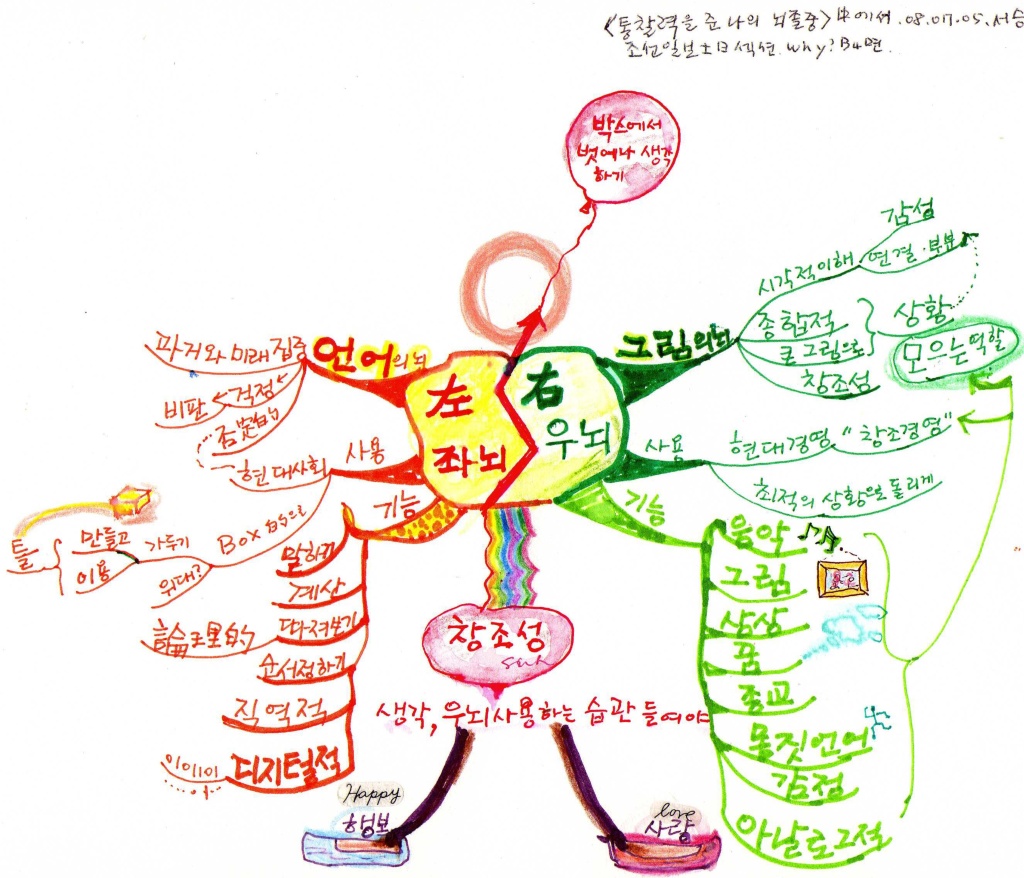 <통찰력을 준 나의 뇌졸중> 中에서. 08.07.05.
조선일보 土日섹션. Why? B4면.
박스에서
벗어나 생각
하기
언어의뇌
과거와 미래 집중
걱정
비판
否定的
左
좌뇌
사용
현대사회
Box 속으로
가두기
만들고
이용
틀
위대?
기능
말하기
계산
따져보기
論理的
순서정하기
직역적
디지털적
右
우뇌
그림의뇌
시각적이해
감성
연결·부분
종합적
큰 그림으로
상황
창조성
모으는역할
사용
현대경영
"창조경영"
최적의 상황으로 돌리게
기능
음악
그림
상상
꿈
종교
몸짓언어
감정
아날로그적
창조성
생각, 우뇌사용하는 습관 들여야
Happy
행복
love
사랑